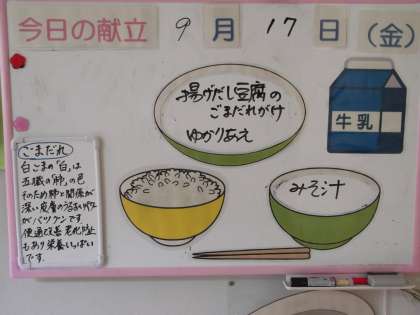 今日の献立 9月17日(金)
揚げだし豆腐の
ごまだれがけ
ゆかりあえ
牛乳
みそ汁
ごまだれ
白ごまの「白」は
五臓の「肺」の色
そのため肺と関係が
深い皮膚のうるおいパワー
がバツグンです
便通改善 老化防止
もあり栄養いっぱい
です。